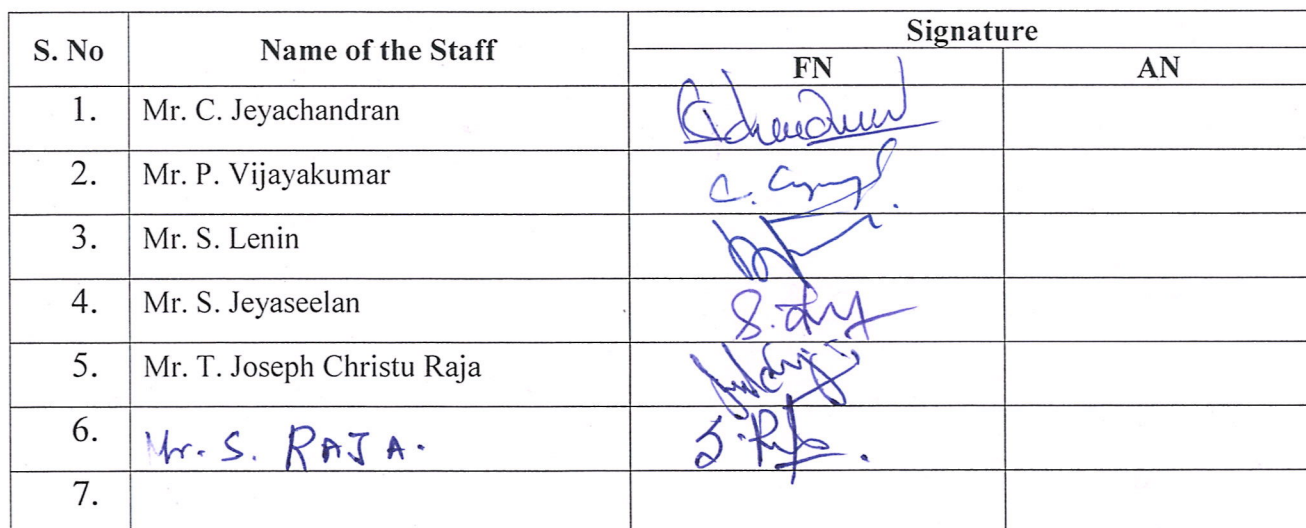 S. No Name of the Staff Signature
FN AN
1. Mr. C. Jeyachandran
2. Mr. P. Vijayakumar
3. Mr. S. Lenin
4. Mr. S. Jeyaseelan
5. Mr. T. Joseph Christu Raja
6. Mr. S. RAJA.
7.